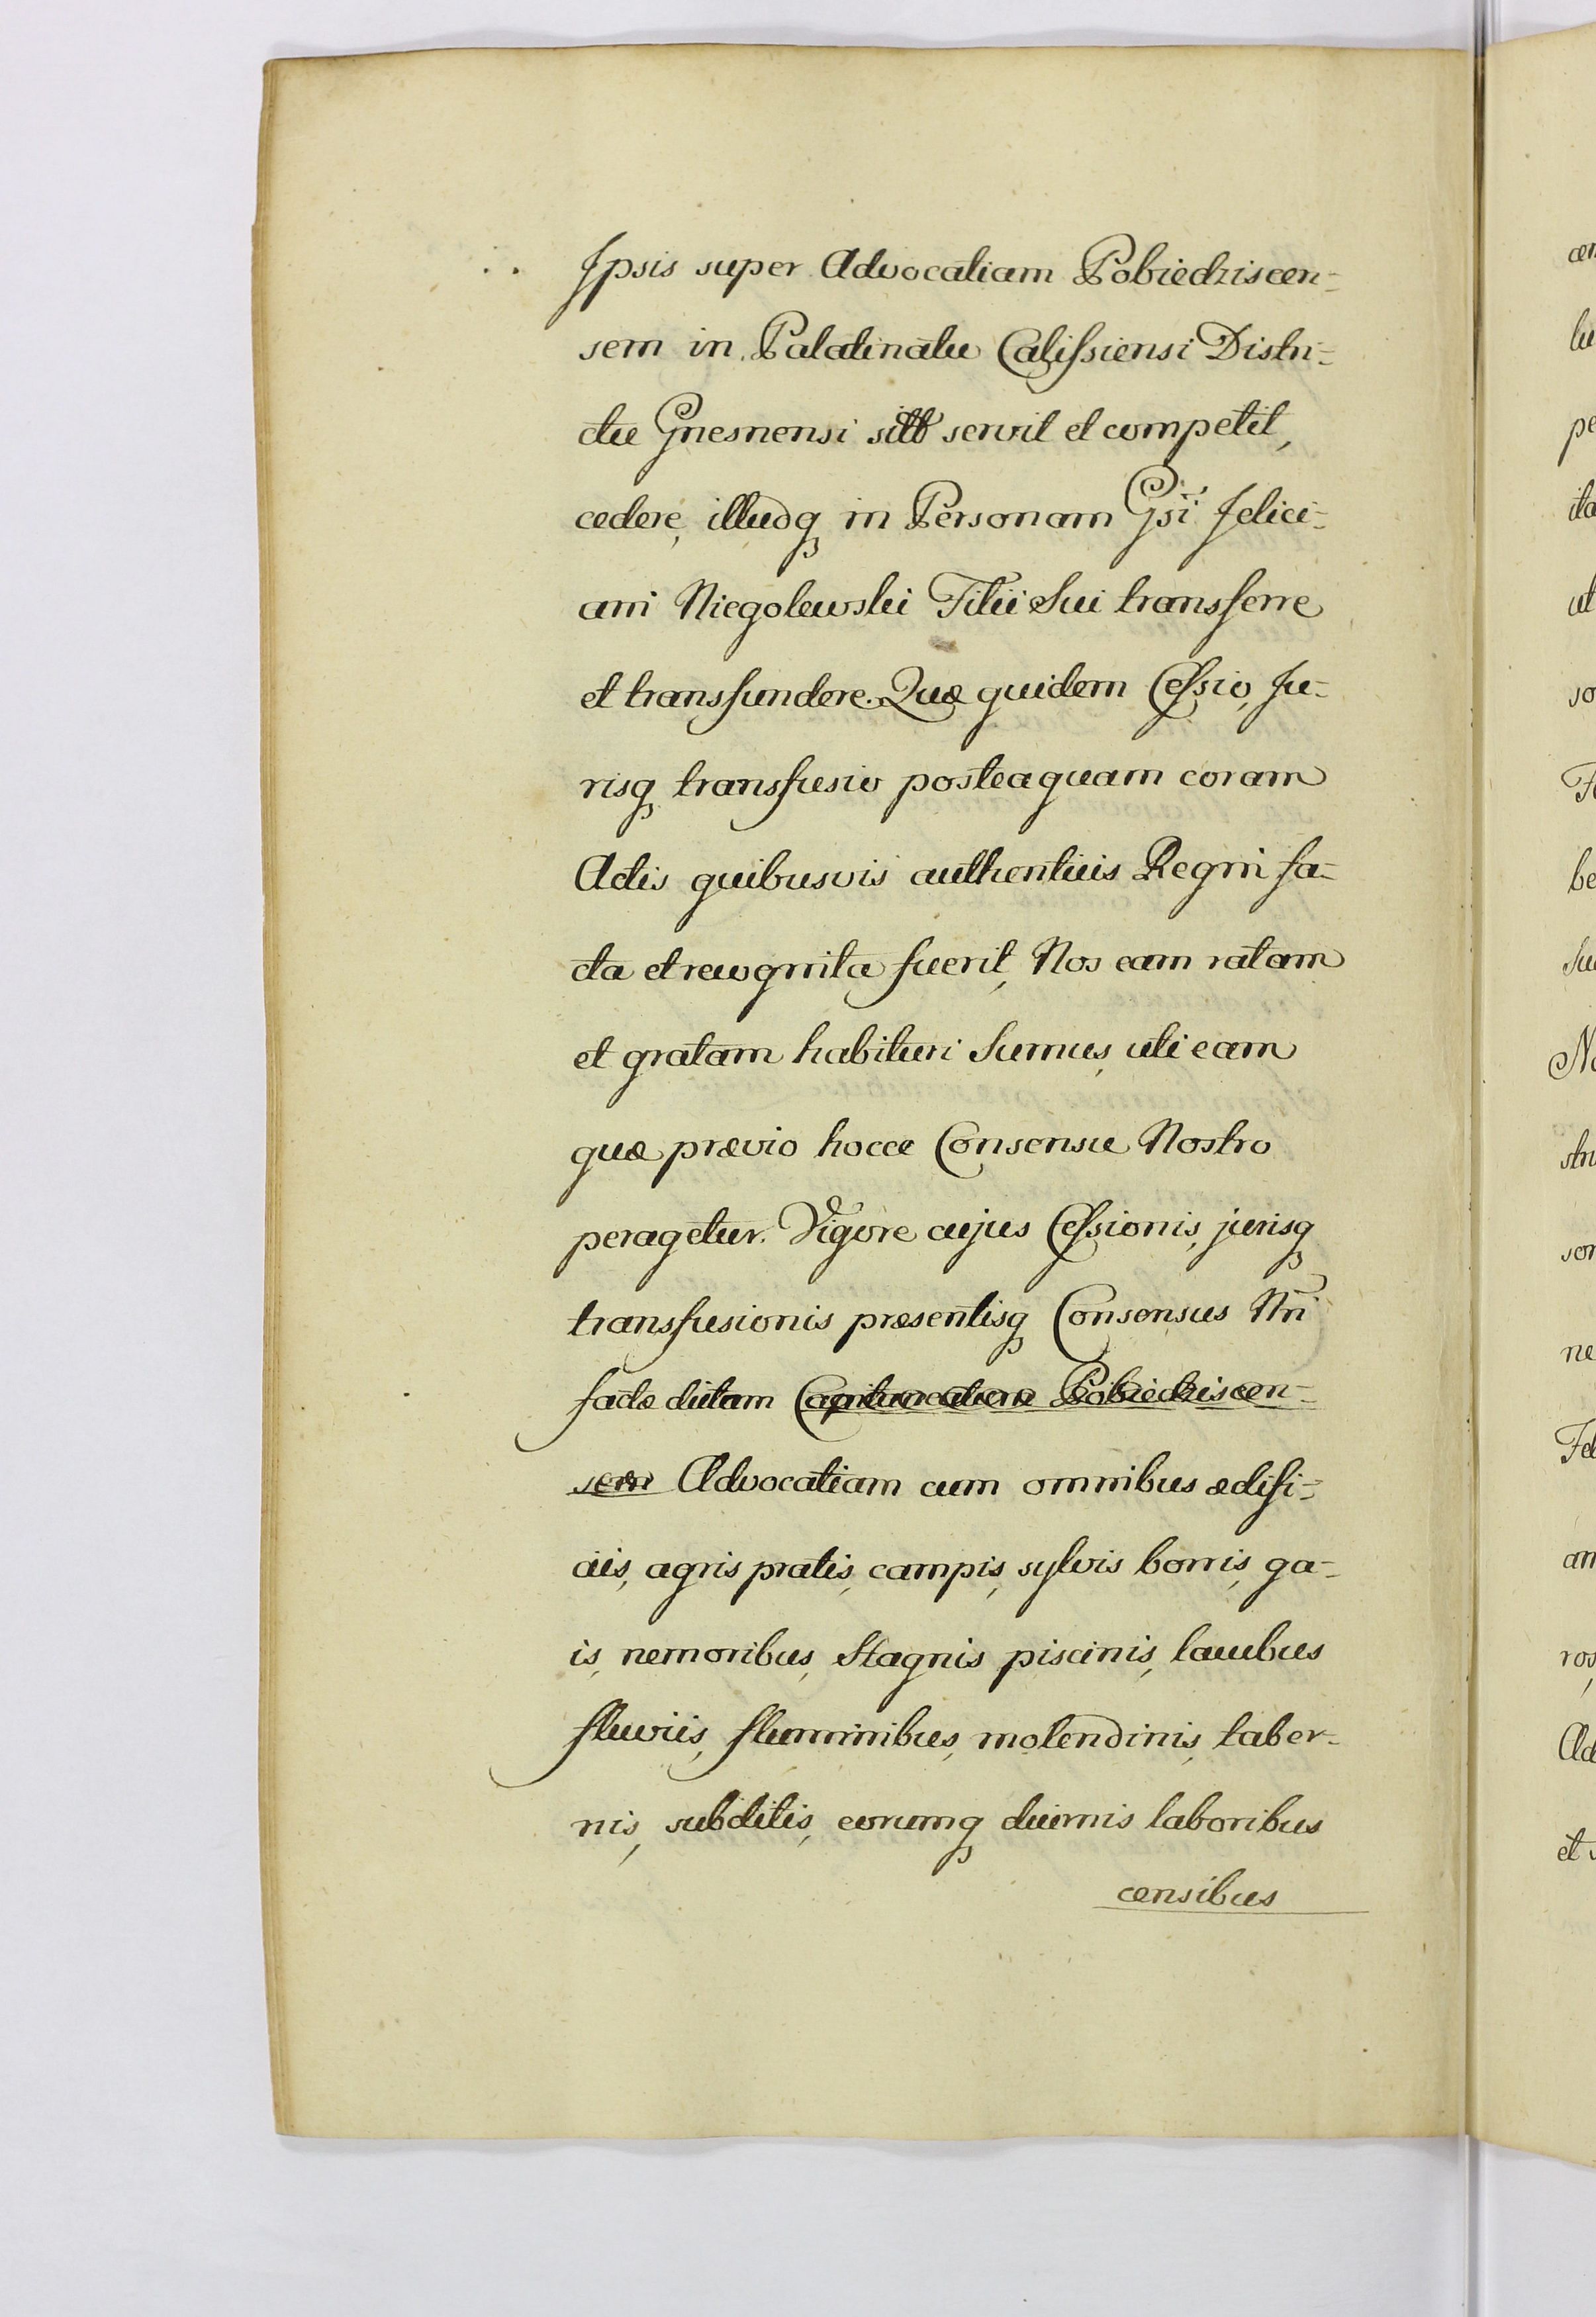 Ipsis super Advocatiam Pobiedziscen-
sem in Palatinatu Calissiensi Distri-
ctu Gnesnensi sitb servit et competit,
cedere, illudq in Personam Gsi Felici-
ani Niegolewski Filii Sui transferre
et transfundere. Quæ quidem Cessio, Ju-
risq transfusio posteaquam coram
Actis quibusvis authenticis Regni fa-
cta et recognita fuerit, Nos eam ratam
et gratam habituri Sumus, uti eam
quæ prævio hocce Consensu Nostro
peragetur. Vigore cujus Cessionis, jurisq
transfusionis præsentisq Consensus Nri
factæ dictam Pobiedziscen-
sem Advocatiam cum omnibus ædifi-
ciis, agris pratis, campis, sylvis borris, ga-
is, nemoribus, Stagnis piscinis, lacubus
fluviis, fluminibus, molendinis, taber-
nis, subditis, eorumq diurnis laboribus
censibus
cen
lu
pe
ita
ut
so
Fe
be
Su
No
stri
son
ne
Fel
an
ros,
Ad
et s